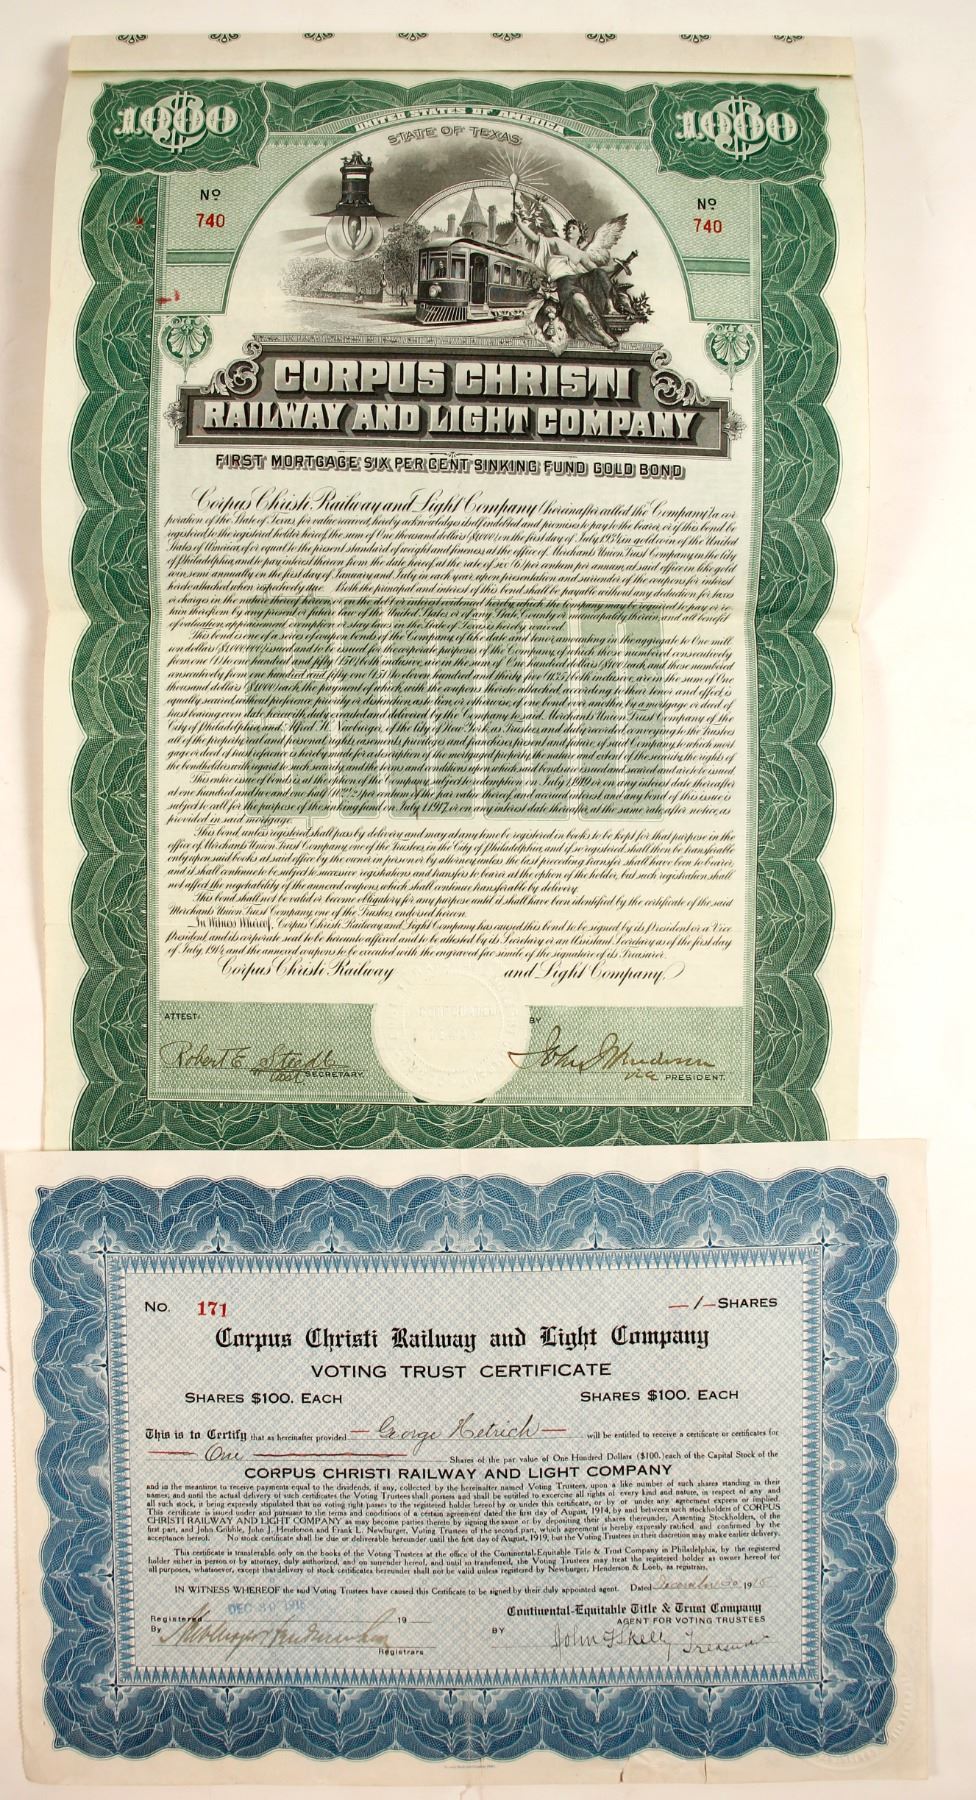 $1000 $1000
UNITED STATES OF AMERICA
STATE OF TEXAS
No No
740 740
CORPUS CHRISTI
RAILWAY AND LIGHT COMPANY
FIRST MORTGAGE SIX PER CENT SINKING FUND GOLD BOND
Corpus Christi Railway and Light Company (hereinafter called the "Company") a cor-
poration of the State of Texas, for value received, hereby acknowledges itself indebted and promises to pay to the bearer, or if this bond be
registered, to the registered holder hereof, the sum of One thousand dollars ($1000) on the first day of July 1934, in gold coin of the United
States of America, of or equal to the present standard of weight and fineness, at the office of Merchants Union Trust Company, in the City
of Philadelphia, and to pay interest thereon from the date hereof at the rate of six (6) per centum per annum, at said office in like gold
coin, semi-annually on the first day of January and July in each year, upon presentation and surrender of the coupons for interest
hereto attached when respectively due. Both the principal and interest of this bond shall be payable without any deduction for taxes
or charges in the nature thereof hereon or on the debt or interest evidenced hereby, which the company may be required to pay or re-
tain therefrom by any present or future law of the United States or of any State, County or Municipality therein, and all benefit
of valuation, appraisement, exemption or stay laws in the State of Texas is hereby waived.
This bond is one of a series of coupon bonds of the Company, of like date and tenor, amounting in the aggregate to One mill-
ion dollars ($1,000,000) issued and to be issued for the corporate purposes of the Company, of which those numbered consecutively
from one (1) to one hundred and fifty (150) both inclusive, are in the sum of One hundred dollars ($100) each, and those numbered
consecutively from one hundred and fifty one (151) to eleven hundred and thirty five (1135) both inclusive, are in the sum of One
thousand dollars ($1000) each, the payment of which, with the coupons thereto attached, according to their tenor and effect, is
equally secured, without preference, priority or distinction, as to lien, or otherwise, of one bond over another, by a mortgage or deed of
trust bearing even date herewith, duly executed and delivered by the Company to said Merchants Union Trust Company of the
City of Philadelphia, and Alfred W. Newburger, of the City of New York, as Trustees, and duly recorded, conveying to the Trustees
all of the property, real and personal, rights, easements, privileges and franchises, present and future, of said Company, to which mort-
gage or deed of trust reference is hereby made for a description of the mortgaged property, the nature and extent of the security, the rights of
the bondholders with regard to such security, and the terms and conditions upon which said bonds are issued and secured and are to be issued.
This entire issue of bonds is at the option of the Company subject to redemption on July 1, 1919 or on any interest date thereafter
at one hundred and two and one half per centum of the par value thereof, and accrued interest, and any bond of this issue is
subject to call for the purpose of the sinking fund on July 1, 1917, or on any interest date thereafter, at the same rate, after notice, as
provided in said mortgage.
This bond, unless registered, shall pass by delivery and may at any time be registered in books to be kept for that purpose in the
office of Merchants Union Trust Company, one of the Trustees, in the City of Philadelphia, and if so registered shall then be transferable
only upon said books at said office by the owner in person or by attorney, unless the last preceding transfer shall have been to bearer,
and it shall continue to be subject to successive registrations and transfers to bearer at the option of the holder, but such registration shall
not affect the negotiability of the annexed coupons, which shall continue transferable by delivery.
This bond shall not be valid or become obligatory for any purpose until it shall have been identified by the certificate of the said
Merchants Union Trust Company, one of the Trustees, endorsed hereon.
In Witness Whereof, Corpus Christi Railway and Light Company has caused this bond to be signed by its President or a Vice
President, and its corporate seal to be hereunto affixed and to be attested by its Secretary or an Assistant Secretary as of the first day
of July, 1914, and the annexed coupons to be executed with the engraved fac simile of the signature of its Treasurer.
Corpus Christi Railway and Light Company,
ATTEST: BY
Robert E. John J. Henderson
Asst SECRETARY. Vice PRESIDENT.
No. 171 —1— SHARES
Corpus Christi Railway and Light Company
VOTING TRUST CERTIFICATE
SHARES $100. EACH SHARES $100. EACH
This is to Certify that as hereinafter provided George Hetrich will be entitled to receive a certificate or certificates for
One Shares of the par value of One Hundred Dollars ($100.) each of the Capital Stock of the
CORPUS CHRISTI RAILWAY AND LIGHT COMPANY
and in the meantime to receive payments equal to the dividends, if any, collected by the hereinafter named Voting Trustees, upon a like number of such shares standing in their
names; and until the actual delivery of such certificates the Voting Trustees shall possess and shall be entitled to exercise all rights of every kind and nature, in respect of any and
all such stock, it being expressly stipulated that no voting right passes to the registered holder hereof by or under this certificate, or by or under any agreement express or implied.
This certificate is issued under and pursuant to the terms and conditions of a certain agreement dated the first day of August, 1914, by and between such stockholders of CORPUS
CHRISTI RAILWAY AND LIGHT COMPANY as may become parties thereto by signing the same or by depositing their shares thereunder, Assenting Stockholders, of the
first part, and John Gribble, John J. Henderson and Frank L. Newburger, Voting Trustees of the second part, which agreement is hereby expressly ratified and confirmed by the
acceptance hereof. No stock certificate shall be due or deliverable hereunder until the first day of August, 1919, but the Voting Trustees in their discretion may make earlier delivery.
This certificate is transferable only on the books of the Voting Trustees at the office of the Continental-Equitable Title & Trust Company in Philadelphia, by the registered
holder either in person or by attorney, duly authorized, and on surrender hereof, and until so transferred, the Voting Trustees may treat the registered holder as owner hereof for
all purposes, whatsoever, except that delivery of stock certificates hereunder shall not be valid unless registered by Newburger, Henderson & Loeb, as registrars.
IN WITNESS WHEREOF the said Voting Trustees have caused this Certificate to be signed by their duly appointed agent. Dated December 30 1915
Continental-Equitable Title & Trust Company
Registered DEC 30 1915 19 AGENT FOR VOTING TRUSTEES
By Registrars BY John F Skelly Treasurer